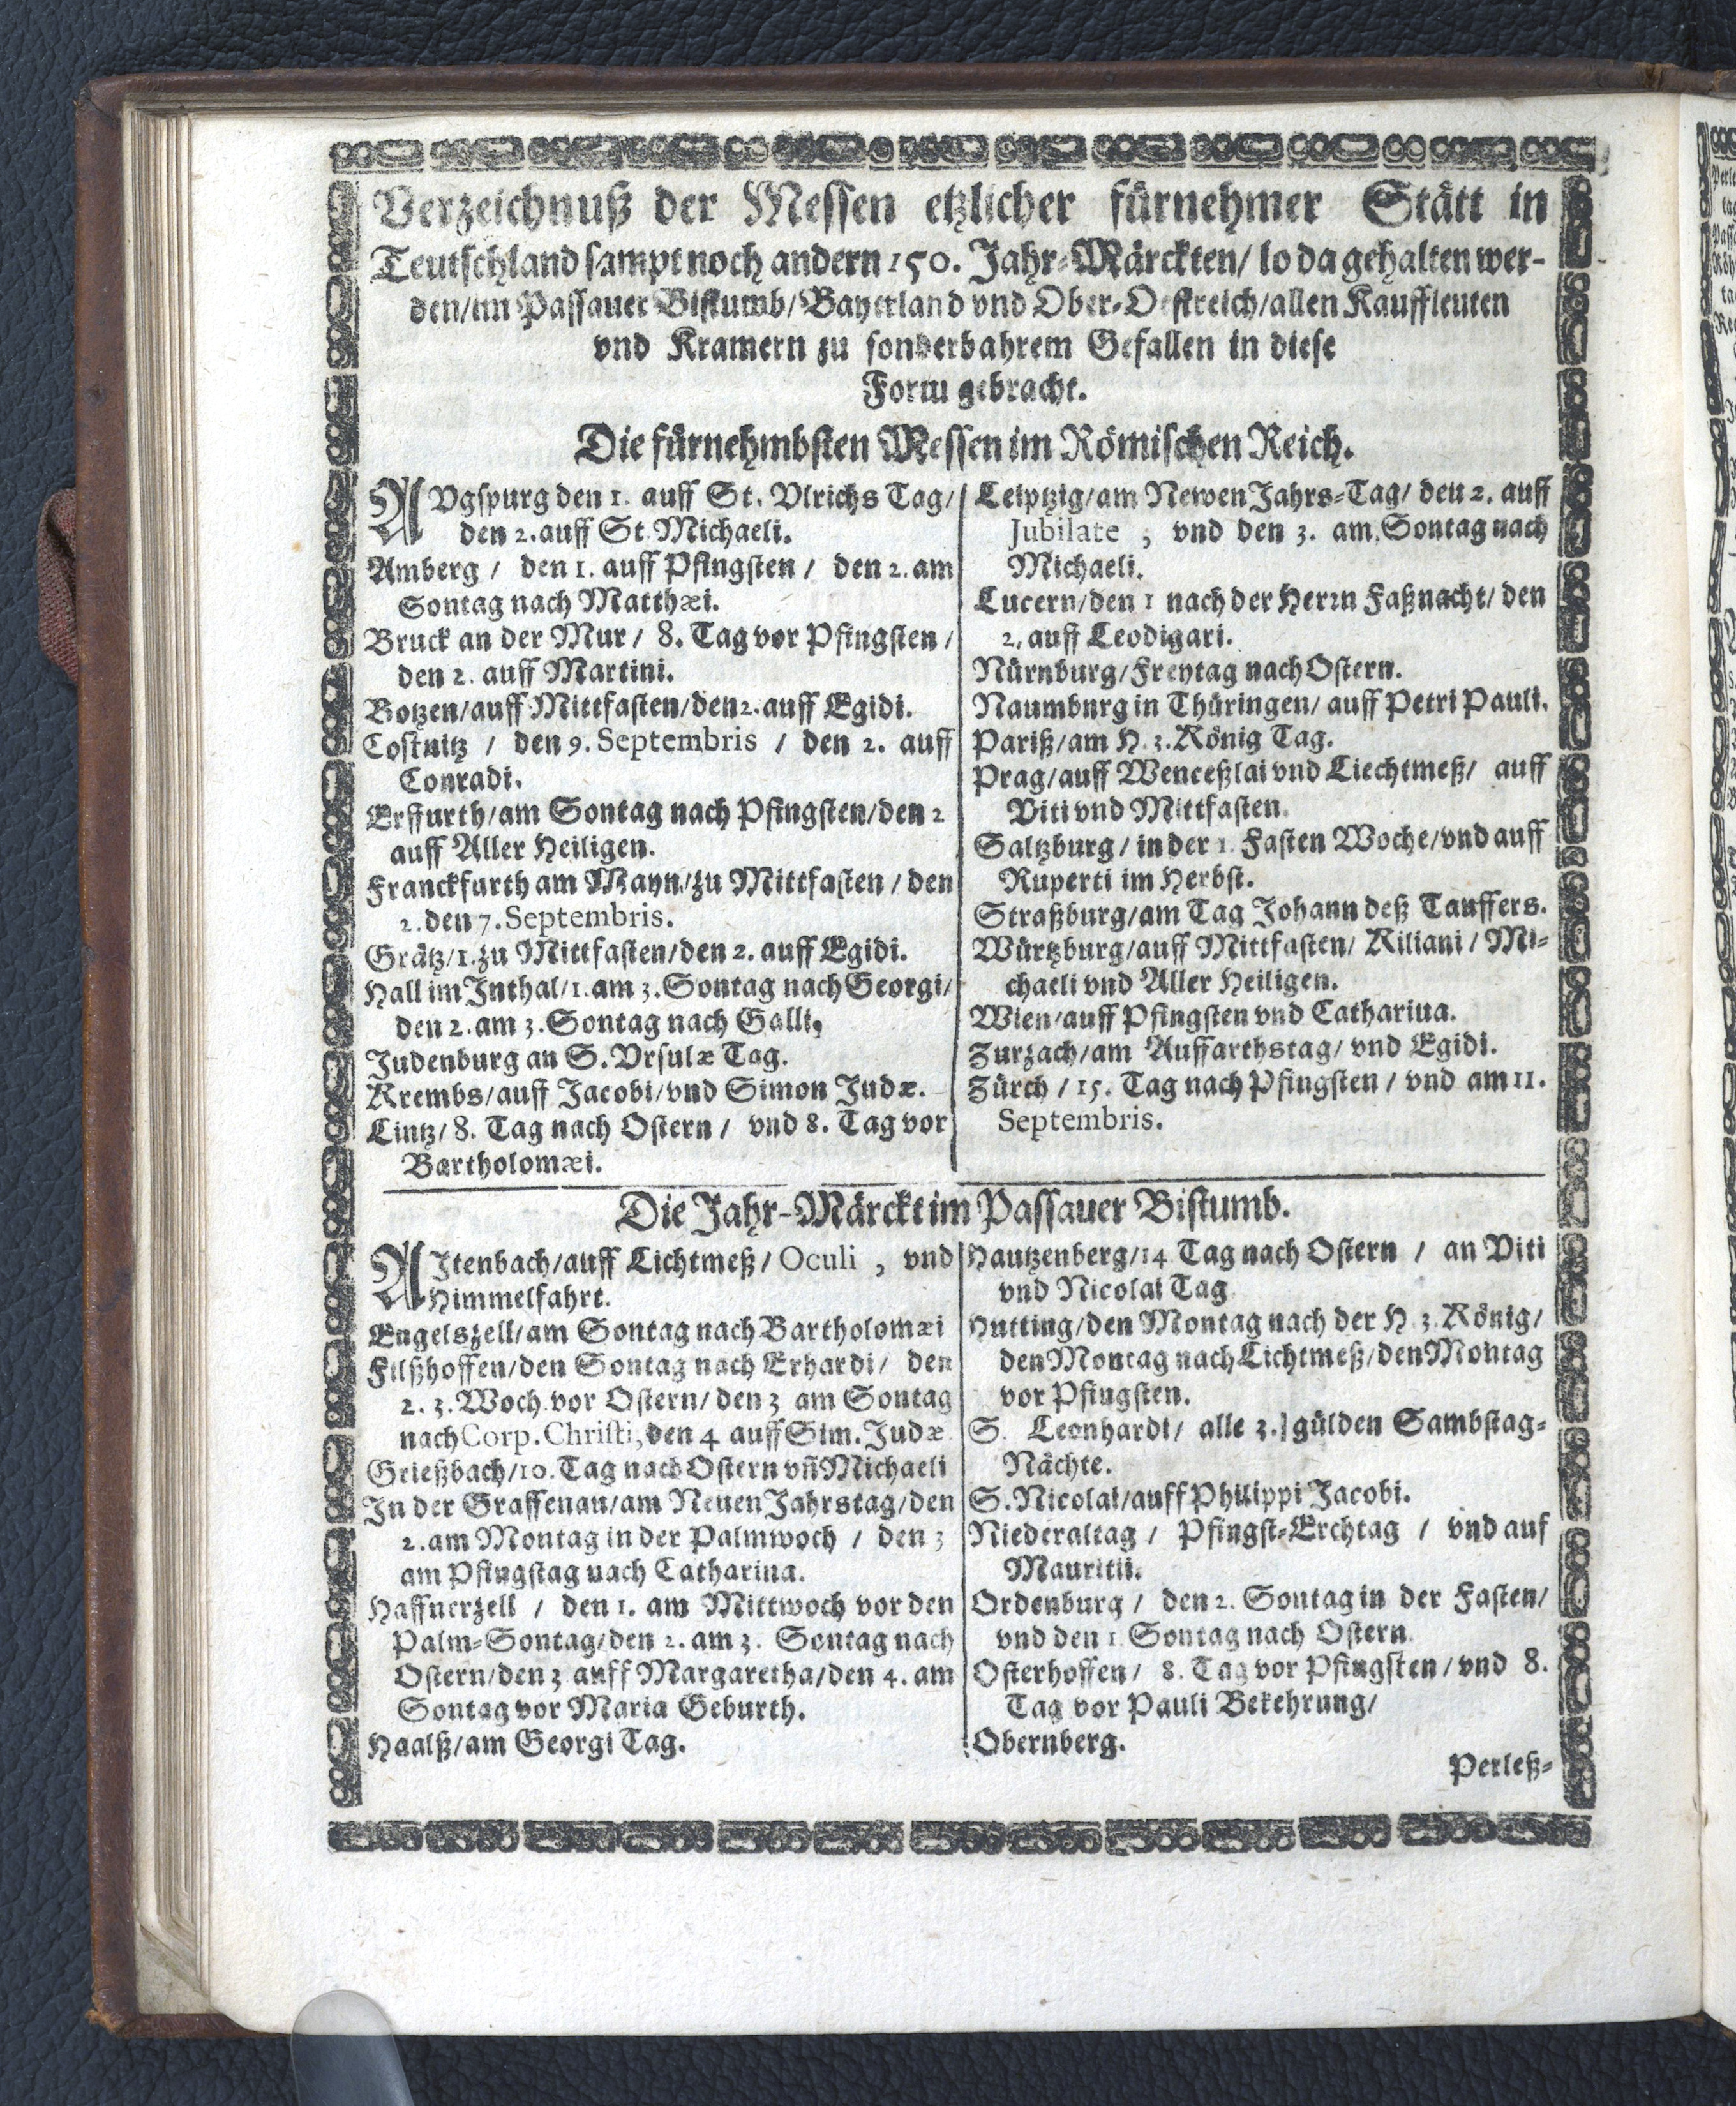 Verzeichnuß der Messen etzlicher fürnehmer Stätt in
Teutschland sampt noch andern 150. Jahr-Märckten/ so da gehalten wer-
den/im Passauer Bistumb/Bayerland vnd Ober-Oestreich/allen Kauffleuten
vnd Kramern zu sonderbahrem Gefallen in diese
Form gebracht.
Die fürnehmbsten Messen im Römischen Reich.
AVgspurg den 1. auff St. Vlrichs Tag/
den 2. auff St Michaeli.
Amberg / den 1. auff Pfingsten / den 2. am
Sontag nach Matthæi.
Bruck an der Mur / 8. Tag vor Pfingsten /
den 2. auff Martini.
Botzen/auff Mittfasten/den 2. auff Egidi.
Costnitz / den 9. Septembris / den 2. auff
Conradi.
Erffurth/am Sontag nach Pfingsten/den 2
auff Aller Heiligen.
Franckfurth am Mayn/zu Mittfasten / den
2. den 7. Septembris.
Grätz/1. zu Mittfasten/den 2. auff Egidi.
Hall im Inthal/1. am 3. Sontag nach Georgi/
den 2. am 3. Sontag nach Galli,
Judenburg an S. Vrsulæ Tag.
Krembs/auff Jacobi/vnd Simon Judæ.
Lintz/ 8. Tag nach Ostern / vnd 8. Tag vor
Bartholomæi.
Leiptzig/am Newen Jahrs-Tag/ den 2. auff
Jubilate , vnd den 3. am Sontag nach
Michaeli.
Lucern/den 1 nach der Herrn Faßnacht/ den
2. auff Leodigari.
Nürnburg/Freytag nach Ostern.
Naumburg in Thüringen/ auff Petri Pauli.
Pariß/am H. 3. König Tag.
Prag/auff Wenceßlai vnd Liechtmeß/ auff
Viti vnd Mittfasten.
Saltzburg / in der 1. Fasten Woche/vnd auff
Ruperti im Herbst.
Straßburg/am Tag Johann deß Tauffers.
Würtzburg/auff Mittfasten/ Kiliani / Mi-
chaeli vnd Aller Heiligen.
Wien/auff Pfingsten vnd Catharina.
Zurzach/am Auffarthstag/ vnd Egidi.
Zürch / 15. Tag nach Pfingsten / vnd am 11.
Septembris.
Die Jahr-Märckt im Passauer Bistumb.
AItenbach/auff Lichtmeß / Oculi , vnd
Himmelfahrt.
Engelszell/am Sontag nach Bartholomæi
Filßhoffen/den Sontag nach Erhardi/ den
2. 3. Woch vor Ostern/ den 3 am Sontag
nach Corp. Christi, den 4 auff Sim. Judæ
Grießbach/10. Tag nach Ostern vñ Michaeli
In der Graffenau/am Neuen Jahrstag/den
2. am Montag in der Palmwoch / den 3
am Pfingstag nach Catharina.
Haffnerzell / den 1. am Mittwoch vor den
Palm-Sontag/den 2. am 3. Sontag nach
Ostern/den 3 auff Margaretha/den 4. am
Sontag vor Maria Geburth.
Haalß/am Georgi Tag.
Hautzenberg/14 Tag nach Ostern / an Viti
vnd Nicolai Tag
Hutting/den Montag nach der H. 3. König/
den Montag nach Lichtmeß/den Montag
vor Pfingsten.
S. Leonhardi/ alle 3. gülden Sambstag-
Nächte.
S. Nicolai/auff Philippi Jacobi.
Niederaltag / Pfingst-Erchtag / vnd auf
Mauritii.
Ordenburg / den 2. Sontag in der Fasten/
vnd den 1 Sontag nach Ostern.
Osterhoffen/ 8. Tag vor Pfingsten / vnd 8.
Tag vor Pauli Bekehrung/
Obernberg.
Perleß-